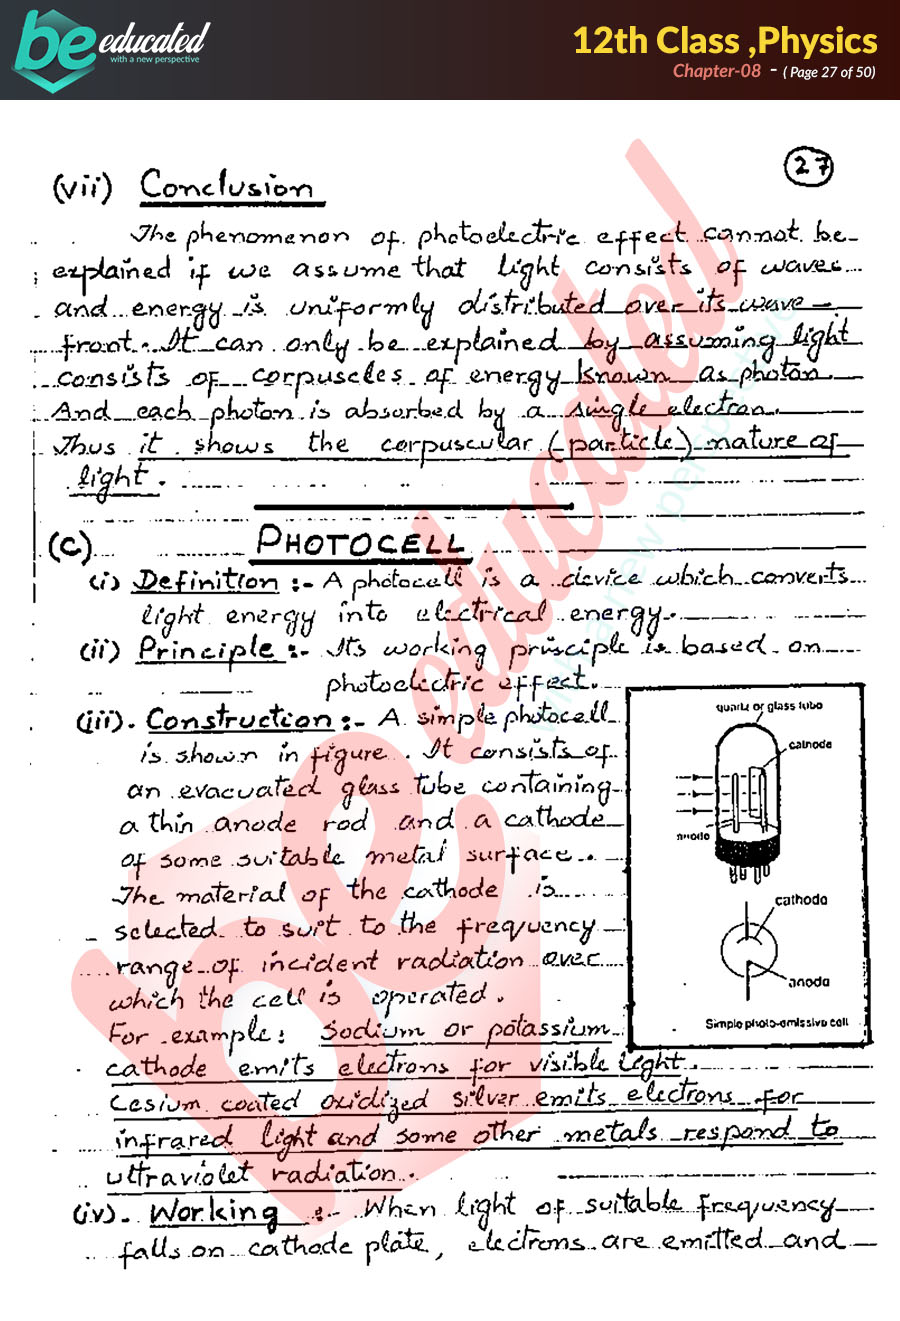 be educated
with a new perspective
12th Class ,Physics
Chapter-08 - ( Page 27 of 50)
27
(vii) Conclusion
The phenomenon of photoelectric effect cannot be
explained if we assume that light consists of waves
and energy is uniformly distributed over its wave-
front. It can only be explained by assuming light
consists of corpuscles of energy known as photon.
And each photon is absorbed by a single electron.
Thus it shows the corpuscular (particle) nature of
light.
(C) PHOTOCELL
(i) Definition :- A photocell is a device which converts
light energy into electrical energy.
(ii) Principle :- Its working principle is based on
photoelectric effect.
(iii). Construction :- A simple photocell
is shown in figure. It consists of
an evacuated glass tube containing
a thin anode rod and a cathode
of some suitable metal surface.
The material of the cathode is
selected to suit to the frequency
range of incident radiation over
which the cell is operated.
For example: Sodium or potassium
cathode emits electrons for visible light.
Cesium coated oxidized silver emits electrons for
infrared light and some other metals respond to
ultraviolet radiation.
(iv). Working :- When light of suitable frequency
falls on cathode plate, electrons are emitted and
quartz or glass tube
cathode
anode
cathode
anode
Simple photo-emissive cell
be educated
with a new perspective